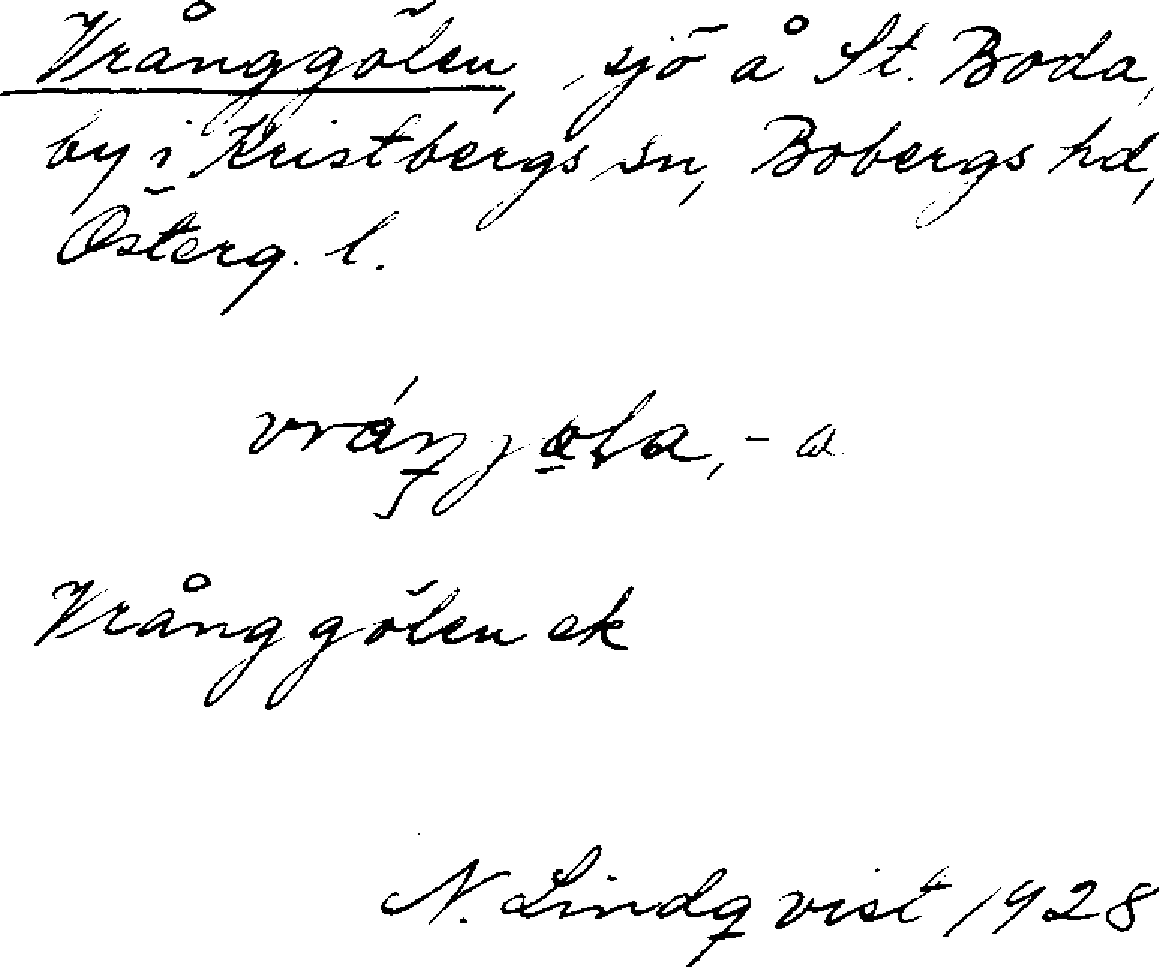 Vrånggölen, sjö å St. Boda,
by i Kristbergs sn, Bobergs hd,
Österg. l.
Vrånggölen ek
N. Lindqvist 1928